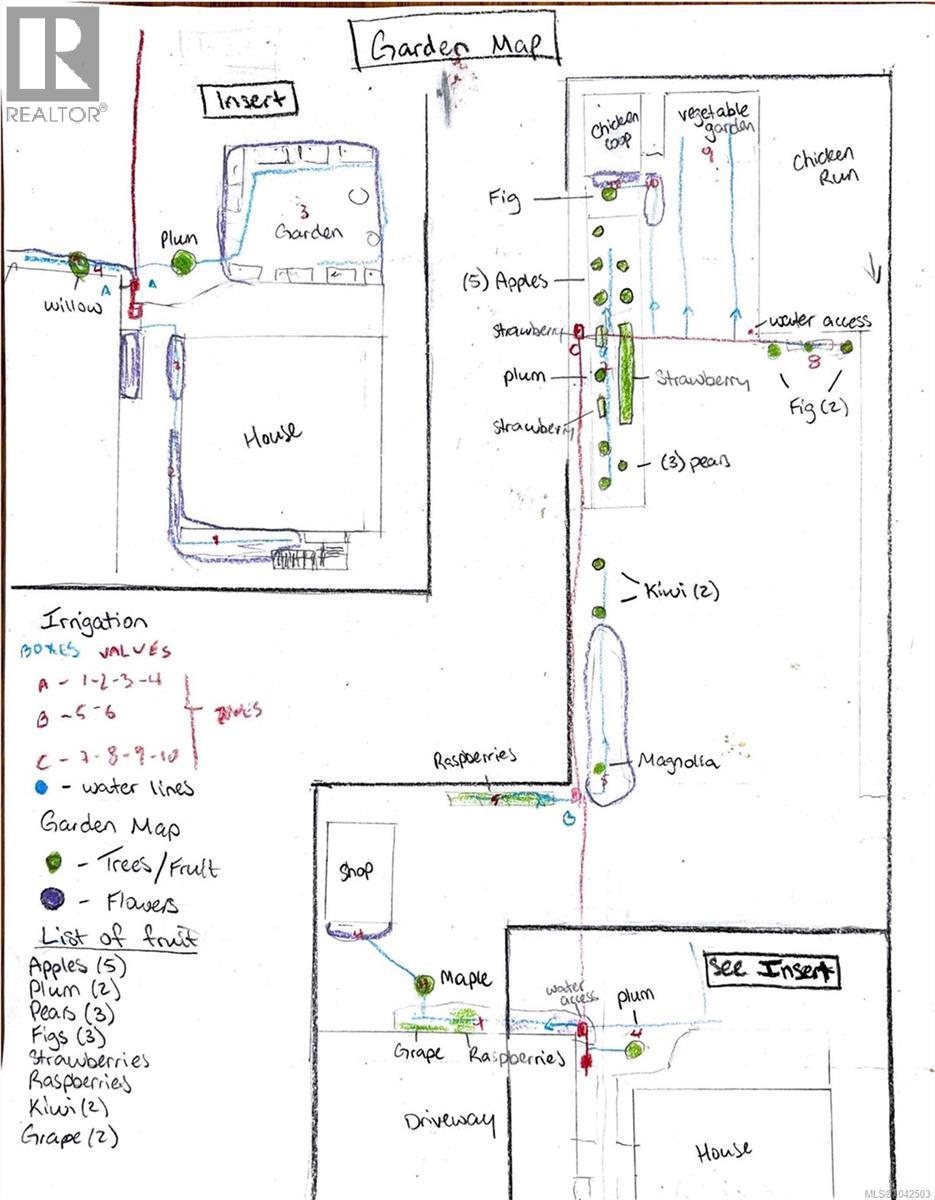 REALTOR®
Garden Map
Insert
3
Garden
Plum
4
Willow
A
A
House
1
Chicken
Coop
vegetable
garden
9
Chicken
Run
Fig
10
(5) Apples
Strawberry
water access
C
plum
Strawberry
8
Fig (2)
Strawberry
(3) pears
Kiwi (2)
Magnolia
5
Raspberries
B
Irrigation
BOXES VALVES
A - 1-2-3-4
B - 5-6
C - 7-8-9-10
- water lines
Garden Map
- Trees/Fruit
- Flowers
List of fruit
Apples (5)
Plum (2)
Pears (3)
Figs (3)
Strawberries
Raspberries
Kiwi (2)
Grape (2)
Shop
4
Maple
Grape
Raspberries
Driveway
See Insert
water
access
plum
4
House